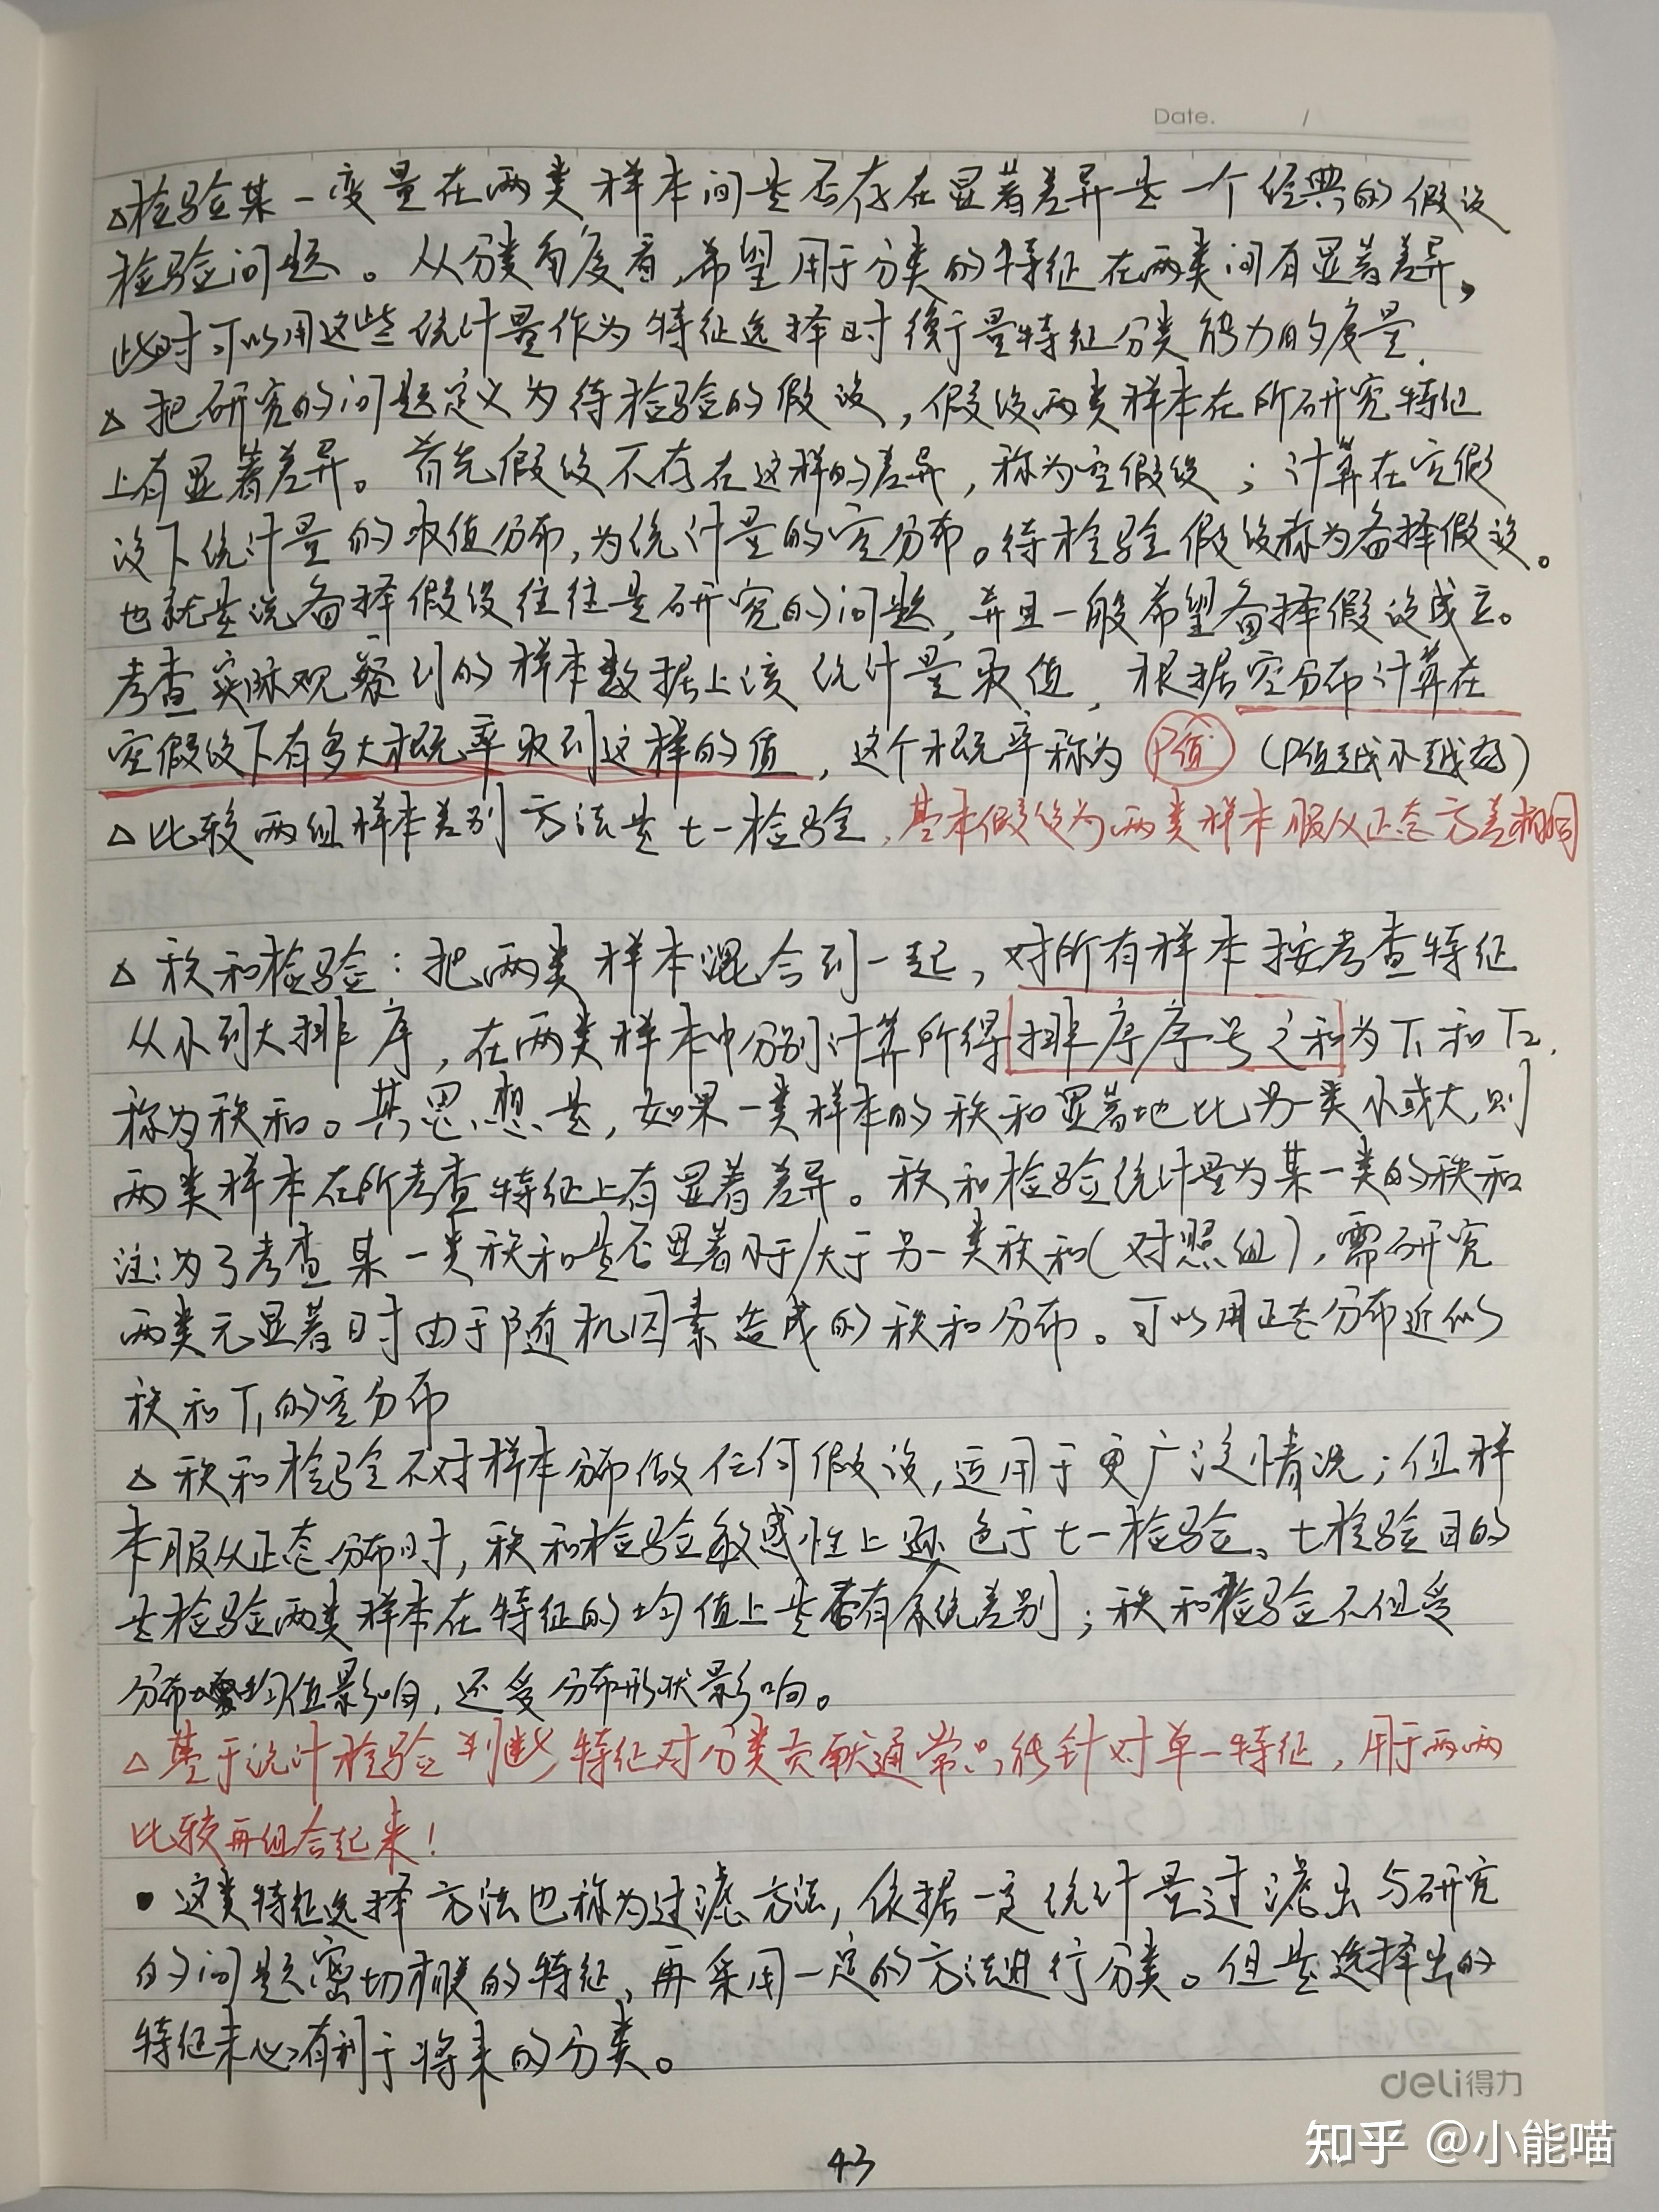 Date. /
△检验某一变量在两类样本间是否存在显著差异是一个经典的假设
检验问题。从分类角度看,希望用于分类的特征在两类间有显著差异,
此时可以用这些统计量作为特征选择时衡量特征分类能力的度量.
△ 把研究的问题定义为待检验的假设,假设两类样本在所研究特征
上有显著差异。首先假设不存在这样的差异,称为空假设;计算在空假
设下统计量的取值分布,为统计量的空分布。待检验假设称为备择假设。
也就是说备择假设往往是研究的问题,并且一般希望备择假设成立。
考查实际观察到的样本数据上该统计量取值,根据空分布计算在
空假设下有多大概率取到这样的值,这个概率称为P值(P值越小越好)
△比较两组样本差别方法是t-检验,基本假设为两类样本服从正态方差相同
△ 秩和检验:把两类样本混合到一起,对所有样本按考查特征
从小到大排序,在两类样本中分别计算所得排序序号之和为T1和T2.
称为秩和。其思想是,如果一类样本的秩和显著地比另一类小或大,则
两类样本在所考查特征上有显著差异。秩和检验统计量为某一类的秩和
注:为了考查某一类秩和是否显著小于/大于另一类秩和(对照组),需研究
两类无显著时由于随机因素造成的秩和分布。可以用正态分布近似
秩和T1的空分布
△ 秩和检验不对样本分布做任何假设,适用于更广泛情况;但样
本服从正态分布时,秩和检验敏感性上逊色于t-检验、t检验目的
是检验两类样本在特征的均值上是否有系统差别;秩和检验不但受
分布均值影响,还受分布形状影响。
△基于统计检验判断特征对分类贡献通常只能针对单一特征,用于两两
比较再组合起来!
• 这类特征选择方法也称为过滤方法,依据一定统计量过滤出与研究
的问题密切相关的特征,再采用一定的方法进行分类。但是选择出的
特征未必有利于将来的分类。
deli得力
知乎 @小能喵
43